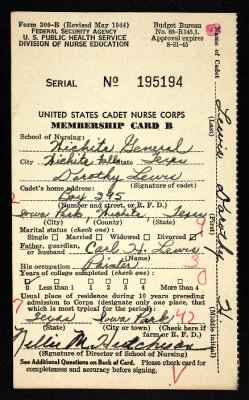 Form 300-B (Revised May 1944)
FEDERAL SECURITY AGENCY
U. S. PUBLIC HEALTH SERVICE
DIVISION OF NURSE EDUCATION
Budget Bureau
No. 68-R145.1.
Approval expires
8-31-45
SERIAL No 195194
UNITED STATES CADET NURSE CORPS
MEMBERSHIP CARD B
School of Nursing:
Wichita General
City Wichita Falls State Texas
Dorothy Lewis
Cadet's home address: (Signature of cadet)
Box 245
(Number and street, or R. F. D.)
Iowa Park, Wichita, Texas
(City) (County) (State)
Marital status (check one):
Single Married Widowed Divorced
Father, guardian, or husband Carl H. Lewis
(Name)
His occupation Painter
Years of college completed (check one):
0 Less than 1 1 2 3 4 4+
Usual place of residence during 10 years preceding
admission to Corps (designate only one place, that
which is most nearly the usual place):
Texas Iowa Park 42
(State) (City or town) (Check here if
farm or R. F. D.)
Nellie M. Hutchinson
(Signature of Director of School of Nursing)
See Additional Questions on Back of Card. Please check card for
completeness and accuracy before signing.
Name of Cadet
Lewis Dorothy
(Last) (First) (Middle initial)